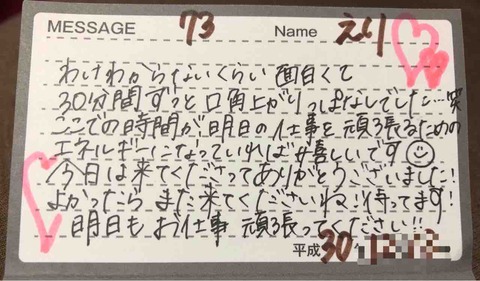 MESSAGE 73 Name えり
わけわからないくらい面白くて
30分間ずっと口角上がりっぱなしでした…笑
ここでの時間が明日の仕事を頑張るための
エネルギーになっていれば嬉しいです
今日は来てくださってありがとうございました!
よかったらまた来てくださいね!待ってます!
明日もお仕事頑張ってください!!
平成30年